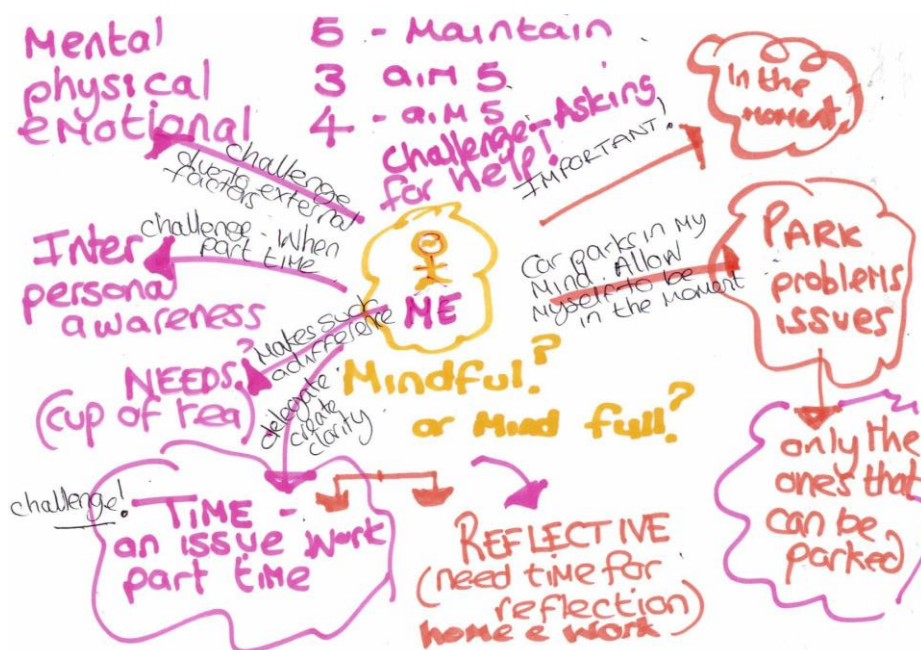 Mental
physical
emotional
5 - Maintain
3 aim 5
4 - aim 5
challenge - Asking
for help!
In the
moment
IMPORTANT!
challenge
due to external
factors
challenge - When
part time
Inter
personal
awareness
ME
Car parks in My
Mind. Allow
Myself to be
in the moment
PARK
problems
issues
Makes such
a difference
NEEDS?
(cup of tea)
delegate.
create
clarity
Mindful?
or Mind full?
only the
ones that
can be
parked
challenge!
TIME -
an issue work
part time
REFLECTIVE
(need time for
reflection)
home e work